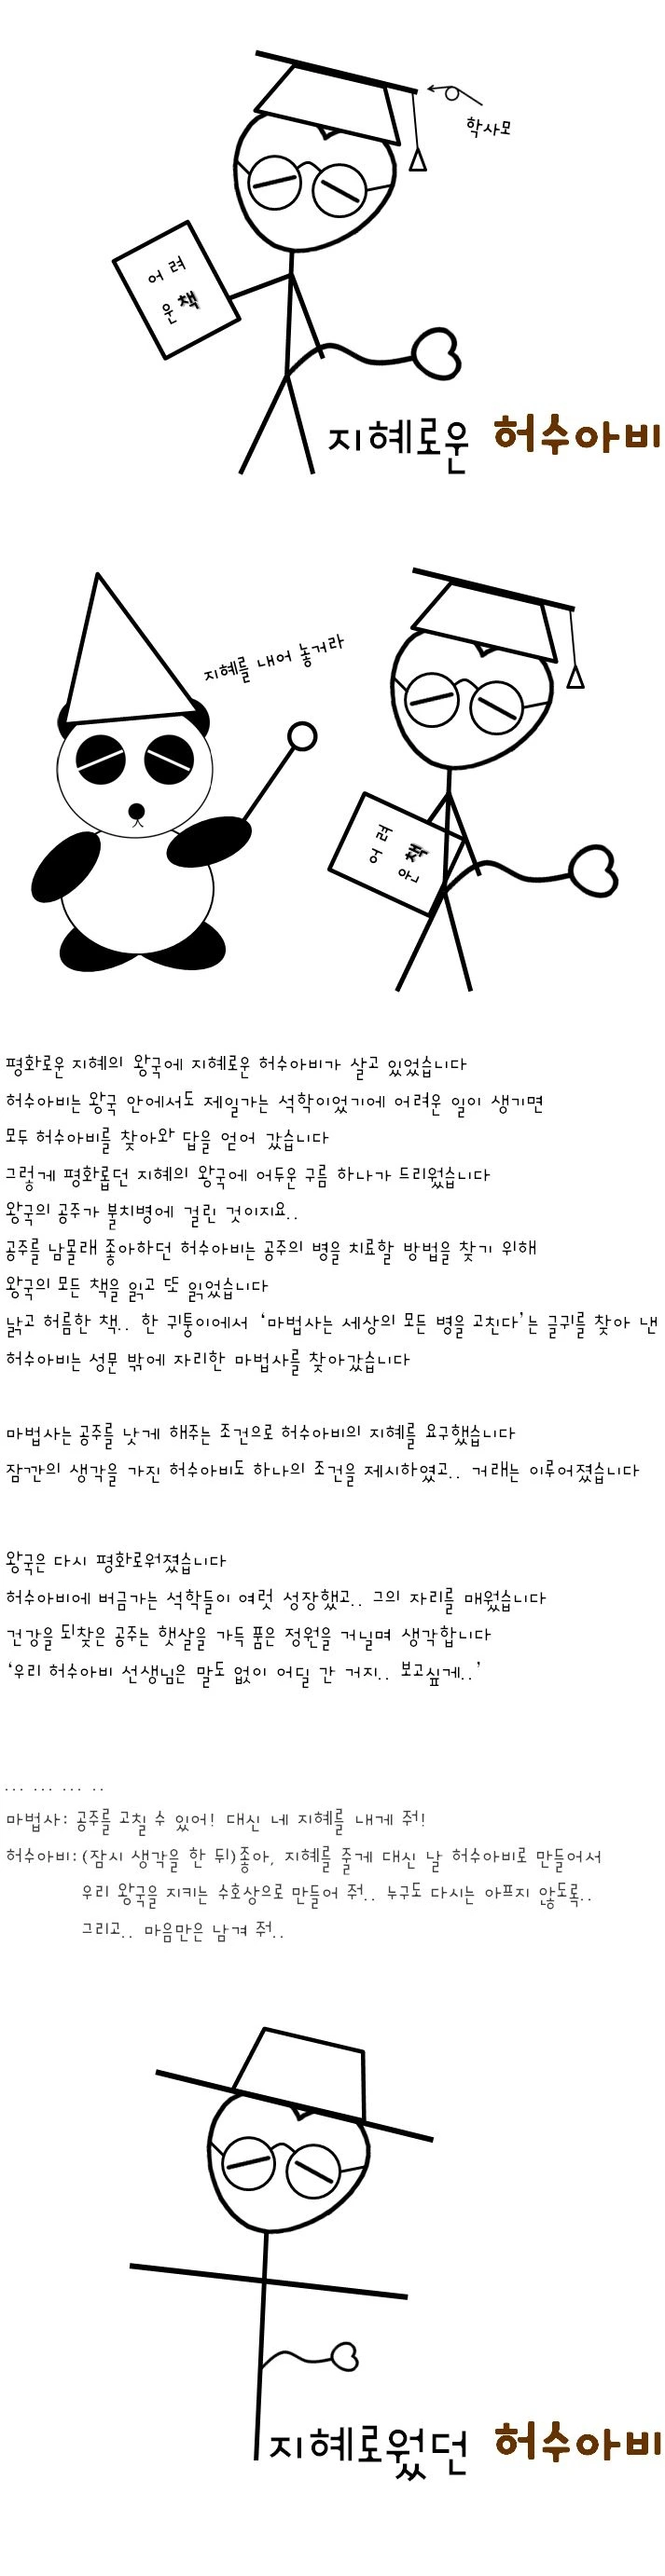 학사모
어 려
운 책
지혜로운 허수아비
지혜를 내어 놓거라
어 려
운 책
평화로운 지혜의 왕국에 지혜로운 허수아비가 살고 있었습니다
허수아비는 왕국 안에서도 제일가는 석학이었기에 어려운 일이 생기면
모두 허수아비를 찾아와 답을 얻어 갔습니다
그렇게 평화롭던 지혜의 왕국에 어두운 구름 하나가 드리웠습니다
왕국의 공주가 불치병에 걸린 것이지요..
공주를 남몰래 좋아하던 허수아비는 공주의 병을 치료할 방법을 찾기 위해
왕국의 모든 책을 읽고 또 읽었습니다
낡고 허름한 책.. 한 귀퉁이에서 ‘마법사는 세상의 모든 병을 고친다’는 글귀를 찾아 낸
허수아비는 성문 밖에 자리한 마법사를 찾아갔습니다
마법사는 공주를 낫게 해주는 조건으로 허수아비의 지혜를 요구했습니다
잠깐의 생각을 가진 허수아비도 하나의 조건을 제시하였고.. 거래는 이루어졌습니다
왕국은 다시 평화로워졌습니다
허수아비에 버금가는 석학들이 여럿 성장했고.. 그의 자리를 매웠습니다
건강을 되찾은 공주는 햇살을 가득 품은 정원을 거닐며 생각합니다
‘우리 허수아비 선생님은 말도 없이 어딜 간 거지.. 보고싶게..’
... ... ... ..
마법사: 공주를 고칠 수 있어! 대신 네 지혜를 내게 줘!
허수아비: (잠시 생각을 한 뒤)좋아, 지혜를 줄게 대신 날 허수아비로 만들어서
우리 왕국을 지키는 수호상으로 만들어 줘.. 누구도 다시는 아프지 않도록..
그리고.. 마음만은 남겨 줘..
지혜로웠던 허수아비